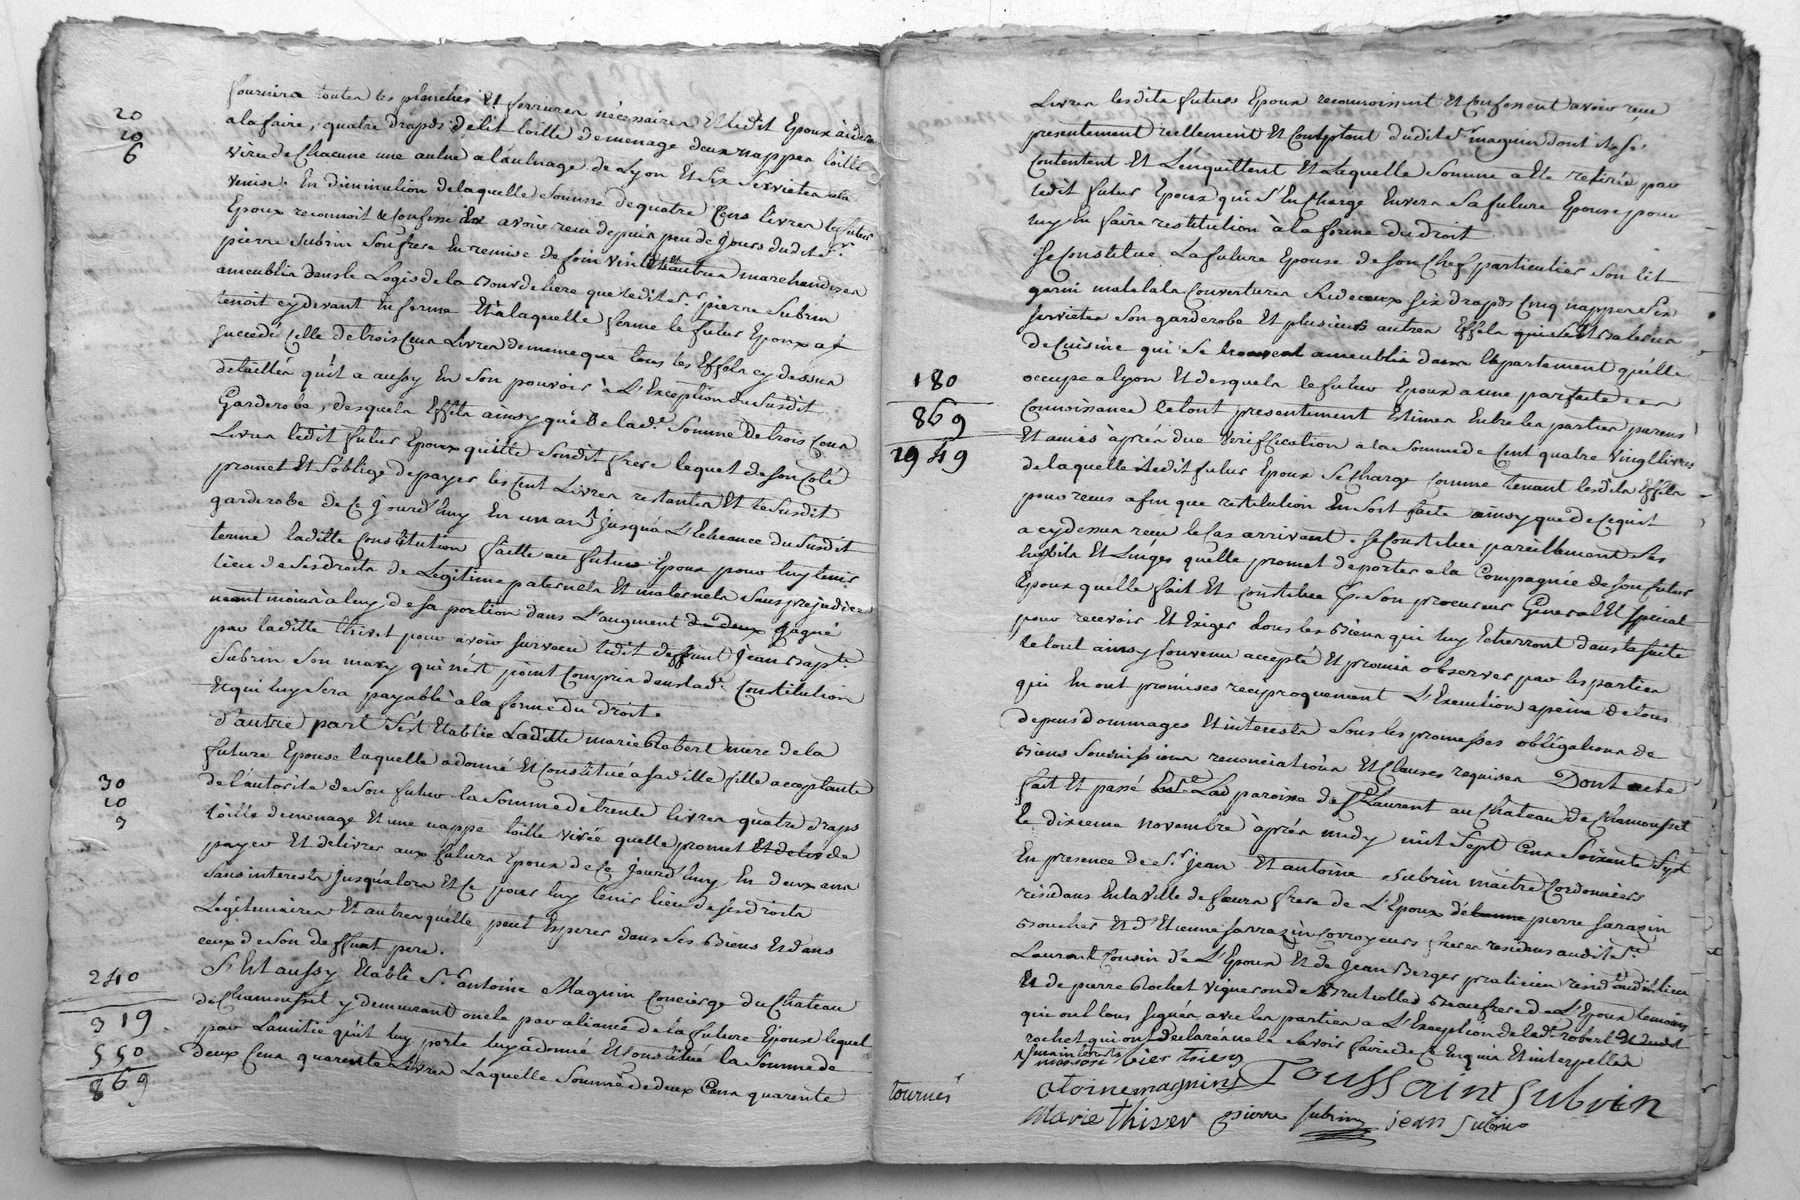 20
10
6
fournira toutes les planches Et ferrures nécessaires Et ledit Epoux aidera
a la faire, quatre draps de lit toille de menage deux nappes toille
virée de Chacune une aulne a l'aulnage de Lyon Et six serviettes
venise. En diminution de laquelle somme de quatre Cens livres le futur
Epoux reconnoit & Confesse avoir reçu depuis peu de Jours dudit Sr.
pierre Subrin son frere En remise de foin vin Et autres marchandises
ameublis dans le Logis de la que ledit Sr. pierre Subrin
tenoit cy devant En ferme Et a laquelle ferme le futur Epoux a
succedé Celle de trois Cens Livres de meme que tous les Effets cy dessus
detaillés qu'il a aussy En son pouvoir à L'Exception du Susdit
Garderobe, desquels Effets ainsy que de lad. somme de trois Cens
Livres ledit futur Epoux quitte sondit frere lequel de son Coté
promet Et s'oblige de payer les Cent Livres restantes Et le Susdit
garderobe de Ce Jourd'huy En un an Jusqu'a L'Echeance du Susdit
terme ladite Constitution faitte au futur Epoux pour luy tenir
lieu de ses droits de Legitime paternels Et maternels sans prejudice
neant moins à luy de sa portion dans L'augment de deux gagné
par laditte thivet pour avoir survecu ledit deffunt Jean Bapte.
Subrin son mary qui n'est point Compris dans lad. Constitution
Et qui luy sera payable à la forme du droit.
d'autre part s'est Etablie Laditte marie Robert mere de la
future Epouse laquelle a donné Et Constitué a sa ditte fille acceptante
30
10
9
de l'autorite de son futur la somme de trente livres quatre draps
toille de menage Et une nappe toille virée quelle promet Et de
payer Et delivrer aux futurs Epoux de Ce Jourd'huy En deux ans
sans interests Jusqu'alors Et Ce pour luy tenir lieu de ses droits
Legitimaires Et autres qu'elle peut Esperer dans ses Biens Et dans
ceux de son deffunt pere.
240
319
550
869
S'Est aussy Etabli Sr. antoine Magnin Concierge du Chateau
de Chamousset y demeurant oncle par aliance de la future Epouse lequel
par L'amitié qu'il luy porte luy a donné Et Constitué la somme de
deux Cens quarente Livres Laquelle somme de deux Cens quarente
Livres lesdits futurs Epoux reconnoissent Et Confessent avoir reçu
presentement reellement Et Comptant dudit Sr. magnin dont ils se
Contentent Et L'enquittent Et laquelle somme a Eté retirée par
ledit futur Epoux qui s'En Charge Envers sa future Epouse pour
luy En faire restitution à la forme du droit
Se Constitue La future Epouse de son Chef particulier son lit
garni matelats Couvertures Rideaux six draps Cinq nappes six
serviettes son garderobe Et plusieurs autres Effets
de Cuisine qui se trouvent ameublis dans l'apartement qu'elle
occupe a lyon Et desquels le futur Epoux a une parfaite
180
869
1949
Connoissance le tout presentement Estimer Entre les parties parens
Et amis après due veriffication a la somme de Cent quatre vingt livres
de laquelle ledit futur Epoux se Charge Comme tenant lesdits Effets
pour reçus afin que restitution En soit faite ainsy que de Ce qu'il
a cy dessus reçu le Cas arrivant. se Constitue pareillement ses
habits Et Linges qu'elle promet de porter a la Compagnie de son futur
Epoux quelle fait Et Constitue Pr. son procureur General Et special
pour recevoir Et Exiger tous les Biens qui luy Echerront dans la suite
le tout ainsy Convenu accepté Et promis observer par les parties
qui En ont promises reciproquement L'Execution a peine de tous
depens dommages Et interests sous les promesses obligations de
Biens soumissions renonciations Et Clauses requises Dont acte
fait Et passé Lad paroisse de St. Laurent au Chateau de Chamousset
le dixieme novembre après midy mil sept Cens soixante sept
En presence de Sr. jean Et antoine Subrin maitre Cordonniers
residans En la ville de feurs frere de L'Epoux pierre sarazin
Boucher Et d'Etienne sarrazin Corroyeurs freres residans audit St.
Laurent Cousin de L'Epoux Et de Jean Berger praticien resid. audit lieu
Et de pierre Rochet vigneron de Brullolles Beaufrere de L'Epoux temoins
qui ont tous signés avec les parties a L'Exception de lad. robert
rochet qui ont declarés ne le savoir faire de Ce Enquis Et interpellés
atoine magnin Toussaint Subrin
Marie thiver pierre subrin jean Subrin
tournés